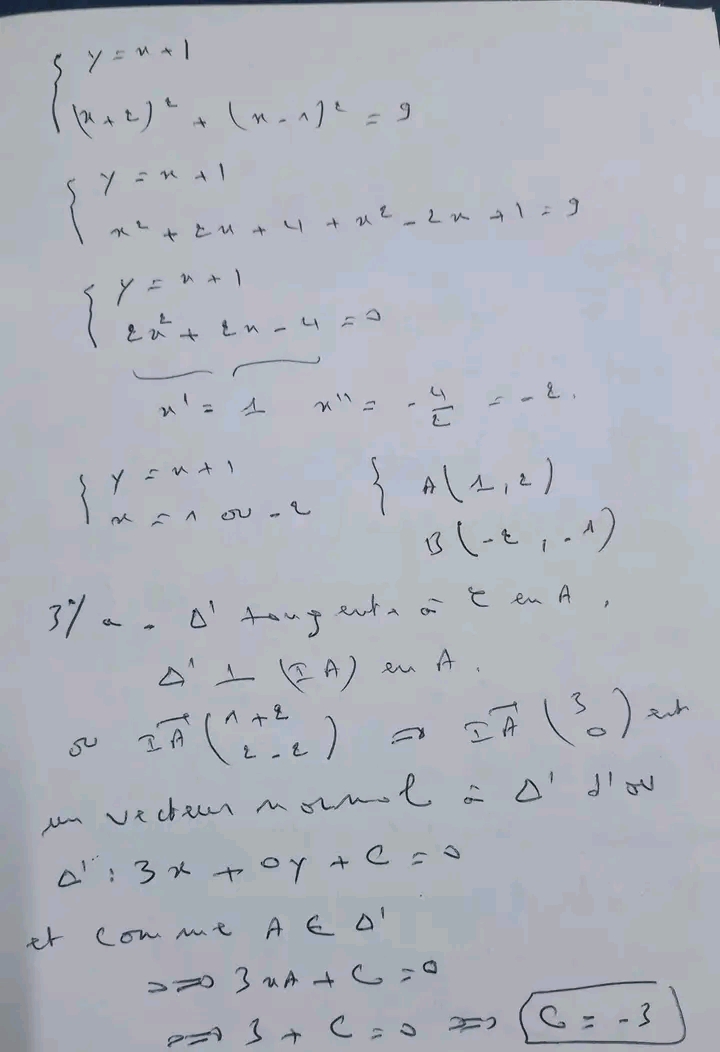 { y = x + 1
(x + 2)² + (x - 1)² = 9
{ y = x + 1
x² + 2x + 4 + x² - 2x + 1 = 9
{ y = x + 1
2x² + 2x - 4 = 0
x' = 1 x'' = - 4/2 = - 2.
{ y = x + 1 { A(1, 2)
x = 1 ou - 2 B(-2, -1)
3°/ a - Δ' tangente à C en A.
Δ' ⊥ (IA) en A.
or IA (1+2 / 2-2) ⇒ IA (3 / 0) est
un vecteur normal à Δ' d'où
Δ' : 3x + 0y + C = 0
et comme A ∈ Δ'
⇒ 3xA + C = 0
⇒ 3 + C = 0 ⇒ C = -3